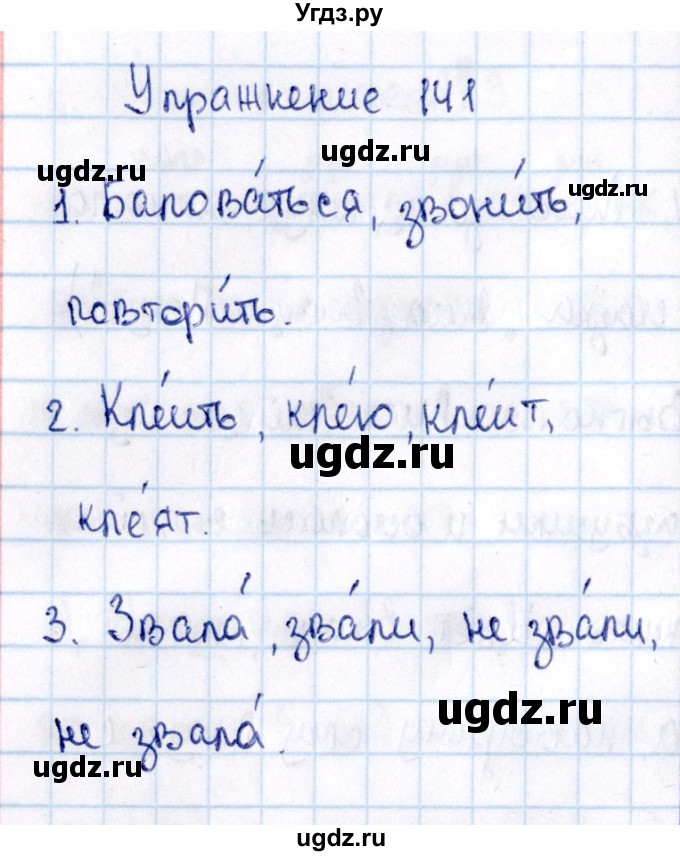 Угдз.ру
Упражнение 141
ugdz.ru
ugdz.ru
ugdz.ru
1. Балова́ться, звони́ть,
повтори́ть.
2. Кле́ить, кле́ю, кле́ит,
ugdz.ru
кле́ят.
3. Звала́, зва́ли, не зва́ли,
ugdz.ru
не звала́.
ugdz.ru
ugdz.ru